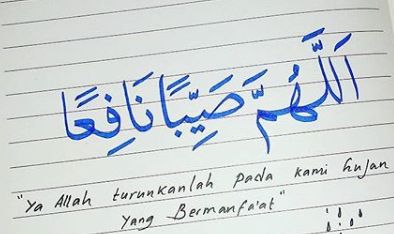 اَللَّهُمَّ صَيِّبًا نَافِعًا
"Ya Allah turunkanlah pada kami hujan
yang Bermanfa'at"